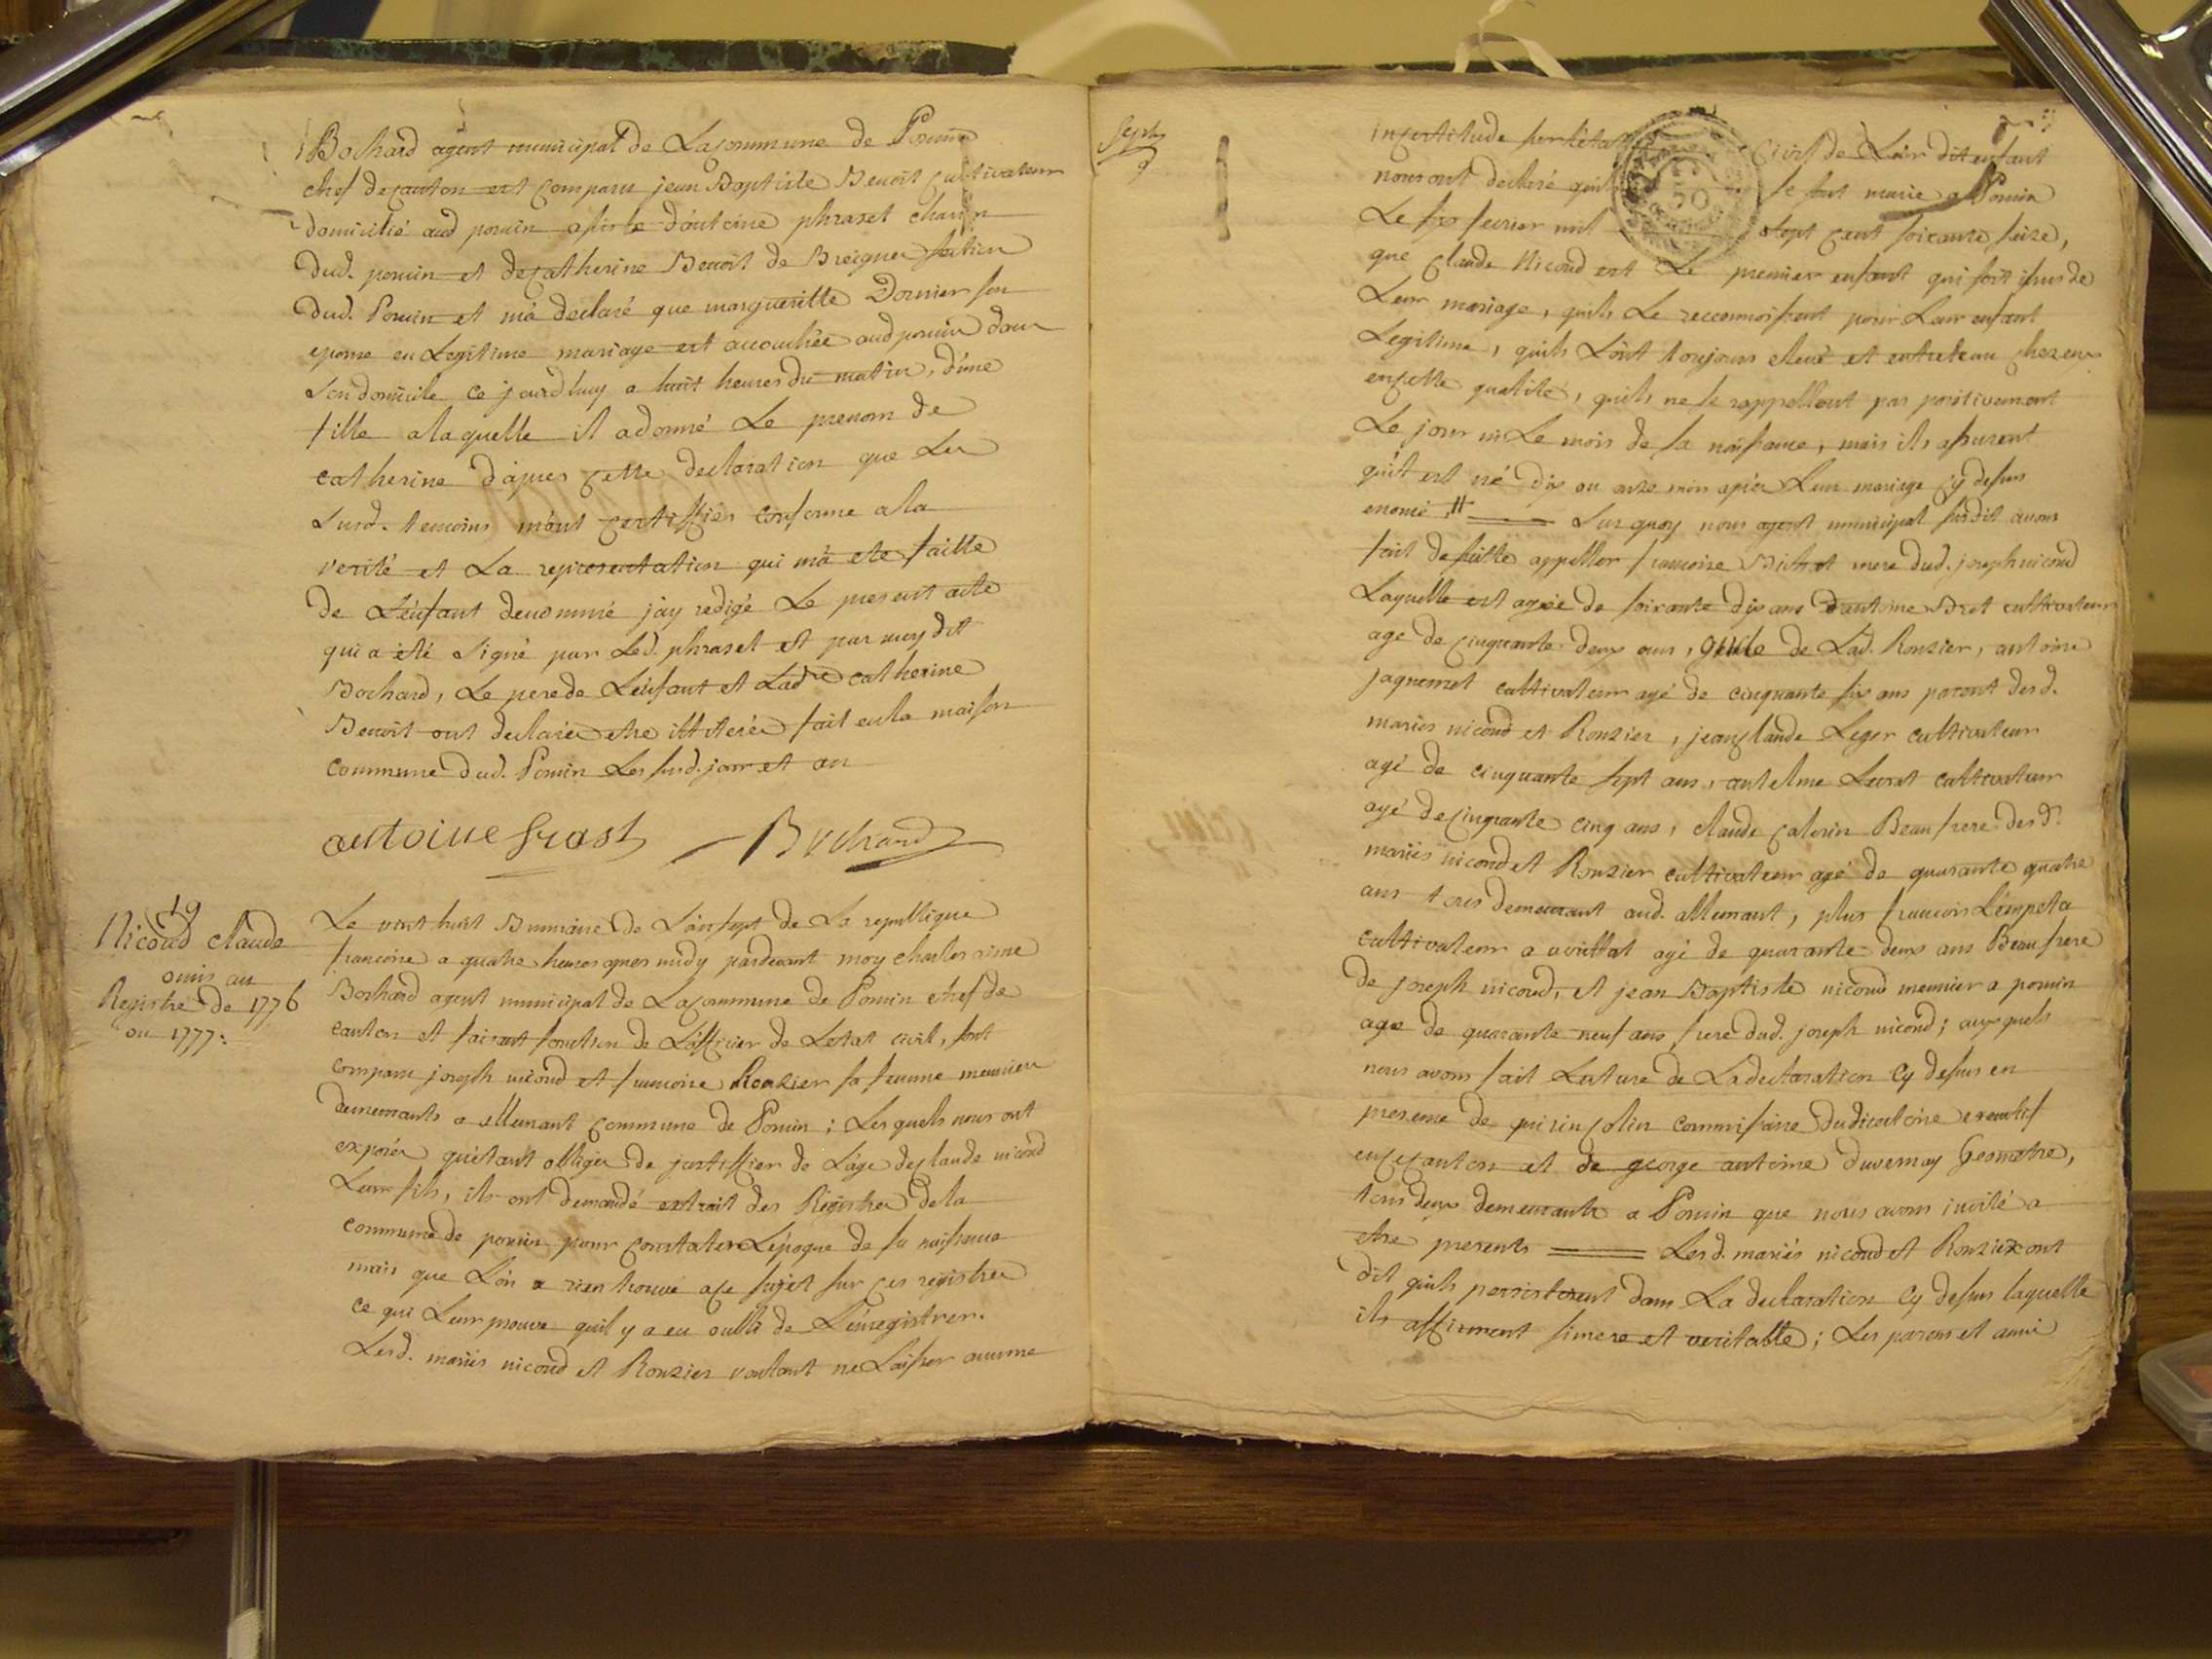 Bochard agent municipal de La commune de Pouin
chef de canton est comparu jean Baptiste Benoit cultivateur
domicilié aud pouin assisté d'antoine phraset
dud. pouin et de catherine Benoit de
dud. Pouin et m'a declaré que margueritte Dornier son
epouse en Legitime mariage est accouchée aud pouin dans
son domicile ce jourdhuy a huit heures du matin, d'une
fille a laquelle il a donné Le prenom de
catherine d'apres cette declaration que Les
susd. temoins m'ont certiffiés conforme a la
verité et La representation qui m'a ete faitte
de L'enfant denommé j'ay redigé Le present acte
qui a été signé par Led. phraset et par moy dit
Bochard, Le pere de L'enfant et Ladte catherine
Benoit ont declarés etre illiterés fait en la maison
commune dud. Pouin Les susd. jour et an
antoine frast Bochard
19
Nicoud claude
omis au
Registre de 1776
ou 1777:
Le vint huit Brumaire de L'an sept de La republique
francoise a quatre heures apres midy pardevant moy charles
Bochard agent municipal de La commune de Pouin chef de
canton et faisant fonction de L'officier de L'etat civil, sont
comparu joseph nicoud et francoise Rouzier sa femme meunier
demeurants a allemant commune de Pouin; Lesquels nous ont
exposés qu'etant obligés de justiffier de L'age de claude nicoud
Leur fils, ils ont demandé extrait des Registres de la
commune de pouin pour constater L'epoque de sa naissance
mais que L'on a rien trouvé a ce sujet sur ces registres
ce qui Leur prouve quil y a eu oubli de L'enregistrer.
Lesd. mariés nicoud et Rouzier voulant ne Laisser aucune
Sept
incertitude sur L'etat civil de Leur dit enfant
nous ont declaré quils se sont marié a Pouin
Le six fevrier mil sept cent soixante seize,
que claude Nicoud est Le premier enfant qui soit issus de
Leur mariage, quils Le reconnoissent pour Leur enfant
Legitime, quils L'ont toujours elevé et entretenu chez eux
en cette qualité, quils ne se rappellent pas positivement
Le jour ni Le mois de sa naissance, mais ils assurent
qu'il est né dix ou onze mois apres Leur mariage cy dessus
enoncé Sur quoy nous agent municipal susdit avons
fait de suitte appeller francoise mere dud. joseph nicoud
Laquelle est agée de soixante dix ans d'antoine Bret cultivateur
age de cinquante deux ans, de Lad. Rouzier, antoine
jaquemet cultivateur agé de cinquante six ans parent desd.
mariés nicoud et Rouzier, jean claude Leger cultivateur
agé de cinquante sept ans, antelme cultivateur
agé de cinquante cinq ans, claude Beaufrere desd.
mariés nicoud et Rouzier cultivateur agé de quarante quatre
ans tous demeurant aud. allemant, plus francois L'empeta
cultivateur a agé de quarante deux ans Beaufrere
de joseph nicoud, et jean Baptiste nicoud meunier a pouin
age de quarante neuf ans frere dud. joseph nicoud; auxquels
nous avons fait Lecture de La declaration cy dessus en
presence de colin commissaire du directoire executif
en ce canton et de george antoine duvernay Geometre,
tous deux demeurants a Pouin que nous avons invité a
etre presents Lesd. mariés nicoud et Rouzier ont
dit quils persistoient dans La declaration cy dessus laquelle
ils affirment sincere et veritable; Les parens et amis